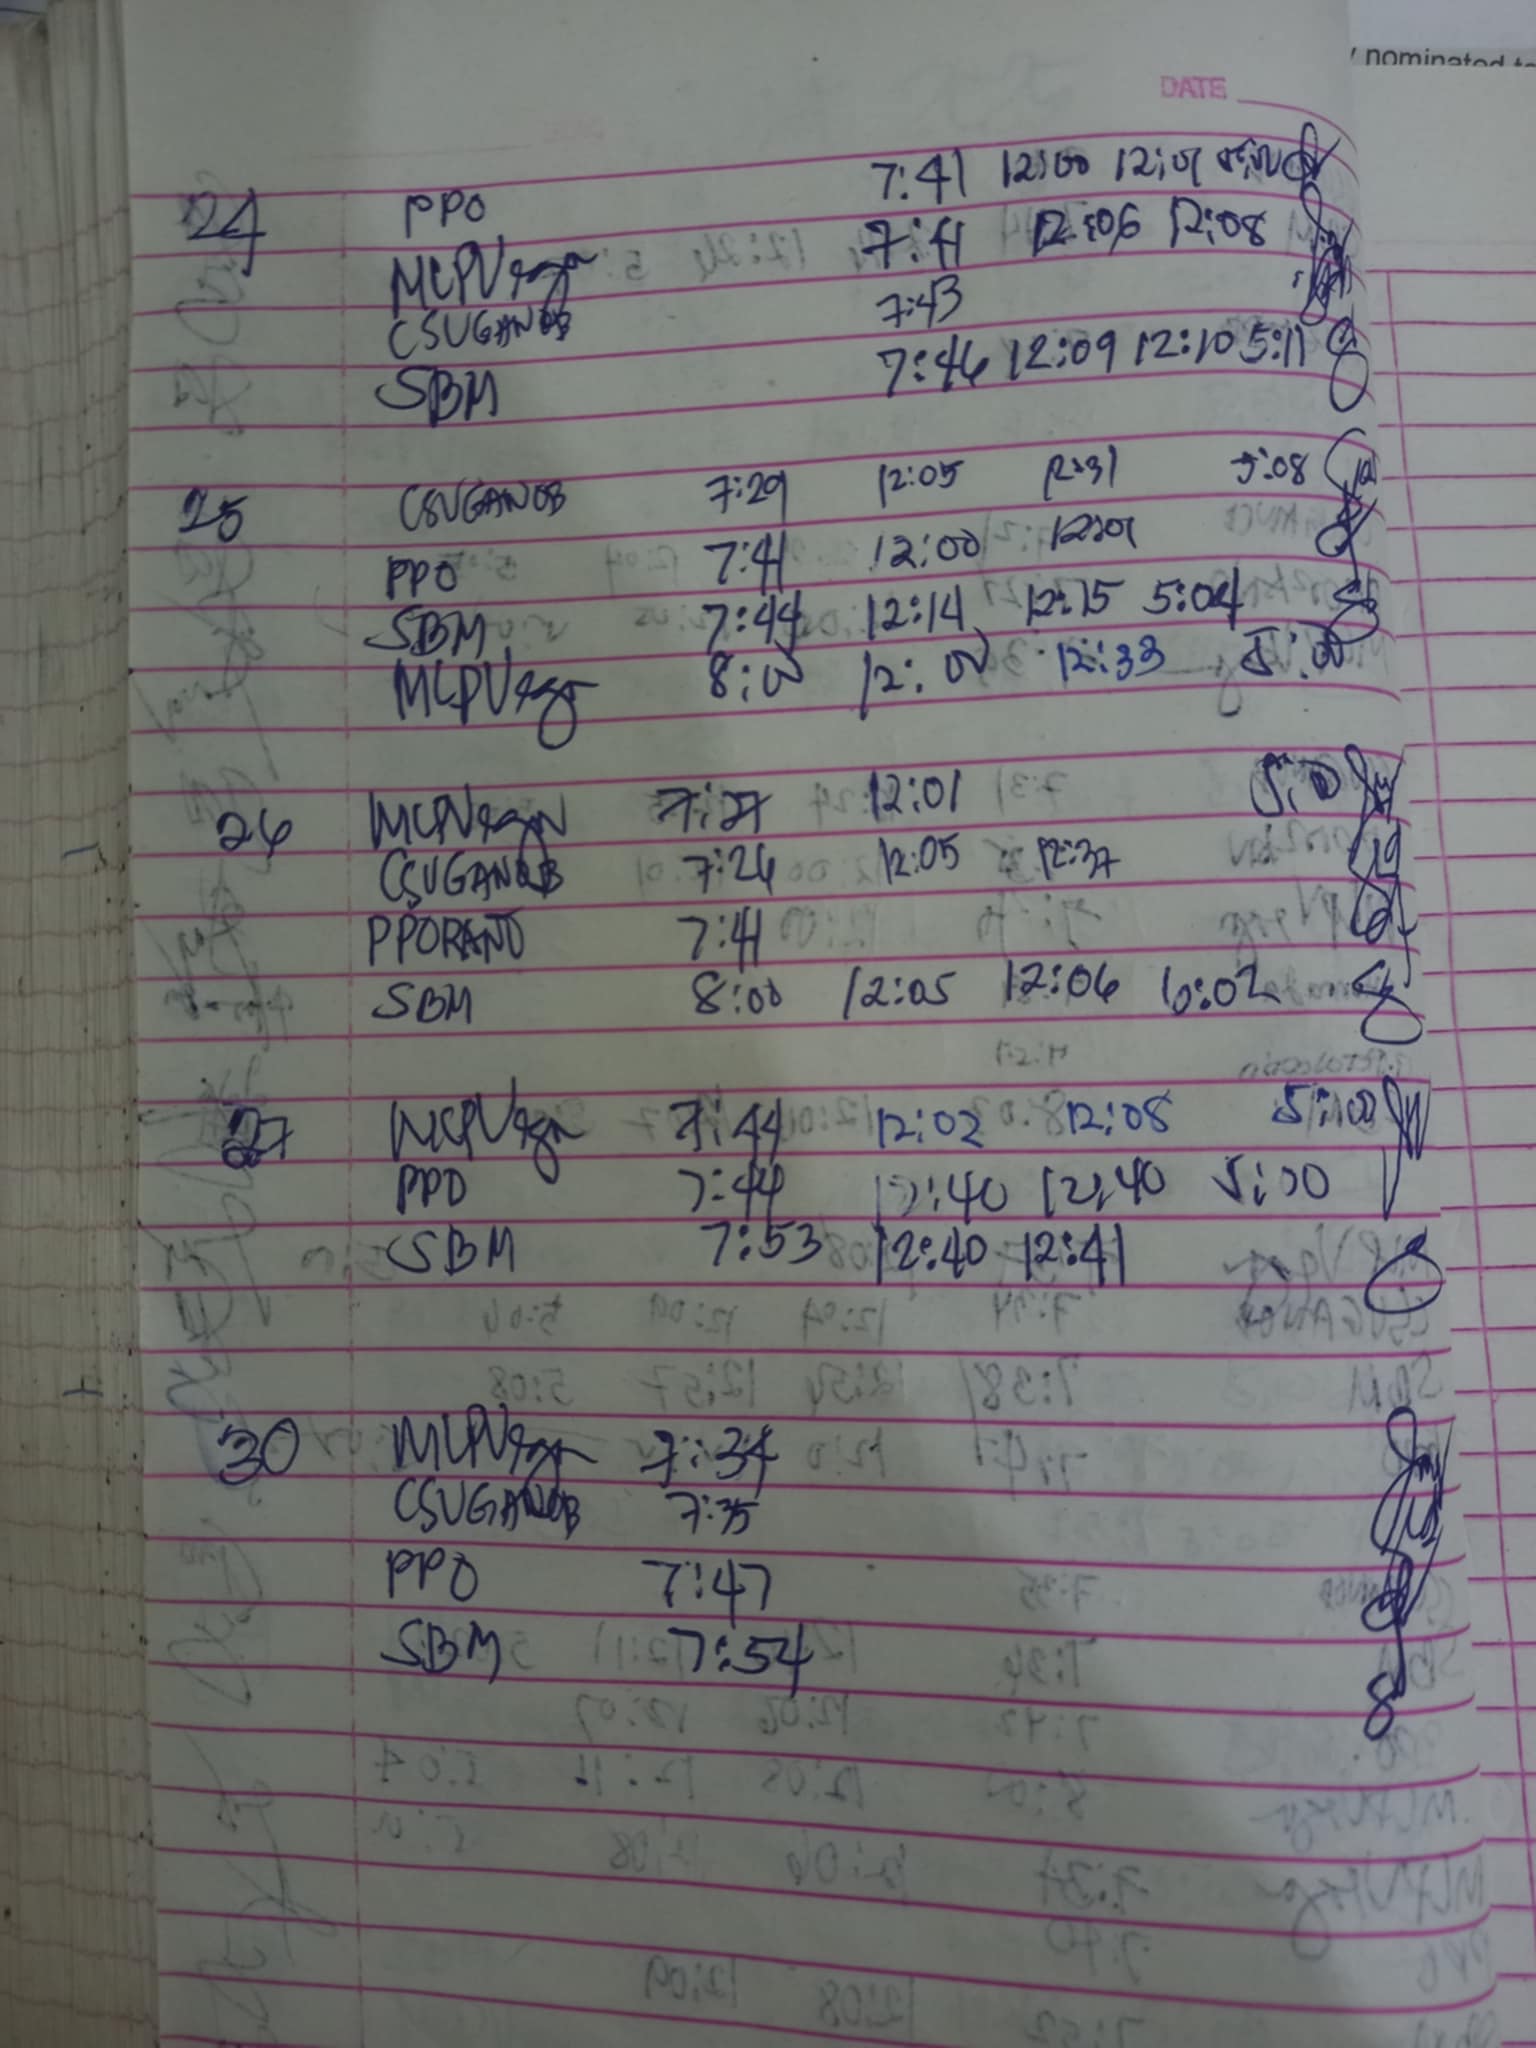 nominated to
DATE
24 PPO 7:41 12:00 12:01 5:00
MCPVega 7:41 12:06 12:08
CSUGANOB 7:43
SBM 7:46 12:09 12:10 5:11
25 CSUGANOB 7:29 12:05 12:31 5:08
PPO 7:41 12:00 12:01
SBM 7:44 12:14 12:15 5:04
MCPVega 8:00 12:00 12:33 5:00
26 MCPVega 7:27 12:01 5:0
CSUGANOB 7:26 12:05 12:37
PPORANO 7:41
SBM 8:00 12:05 12:06 6:02
27 MCPVega 7:44 12:02 12:08 5:00
PPO 7:44 12:40 12:40 5:00
SBM 7:53 12:40 12:41
30 MCPVega 7:34
CSUGANOB 7:35
PPO 7:47
SBM 7:54